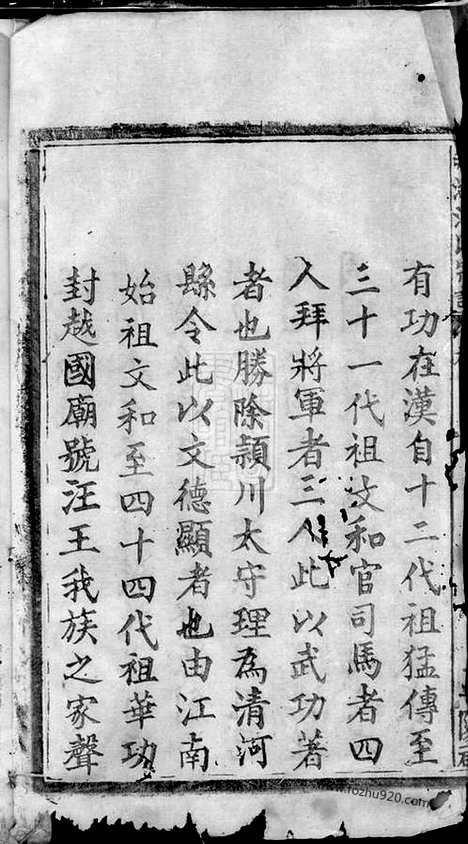 有功在漢自十二代祖猛傳至
三十一代祖文和官司馬者四
入拜將軍者三人此以武功著
者也勝除頴川太守理為清河
縣令此以文德顯者也由江南
始祖文和至四十四代祖華功
封越國廟號汪王我族之家聲
www.fozhu920.com